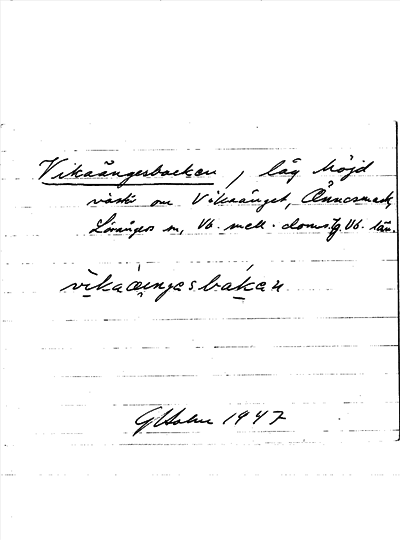 Vikaängesbacken, låg höjd
väster om Vikaänget, Ånnesmark,
Lövångers sn, Vb. mell. doms. Vb. län.
vikaæŋgesbaken
GHolm 1947